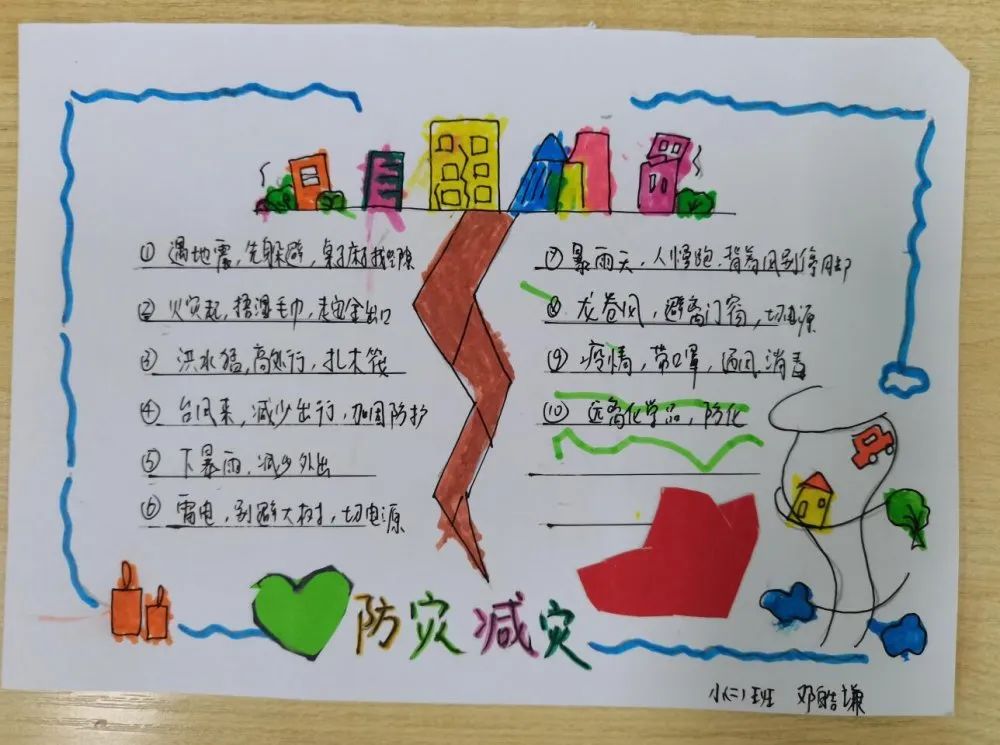 ① 遇地震，先躲避，桌子床下找空隙
② 火灾起，捂湿毛巾，走安全出口
③ 洪水猛，高处行，扎木筏
④ 台风来，减少出行，加固防护
⑤ 下暴雨，减少外出
⑥ 雷电，别避大树，切电源
⑦ 暴雨天，人慢跑，背着风别停脚
⑧ 龙卷风，避离门窗，切电源
⑨ 疫情，带口罩，通风消毒
⑩ 远离化学品，防化
防灾减灾
小(二)班 邓皓谦